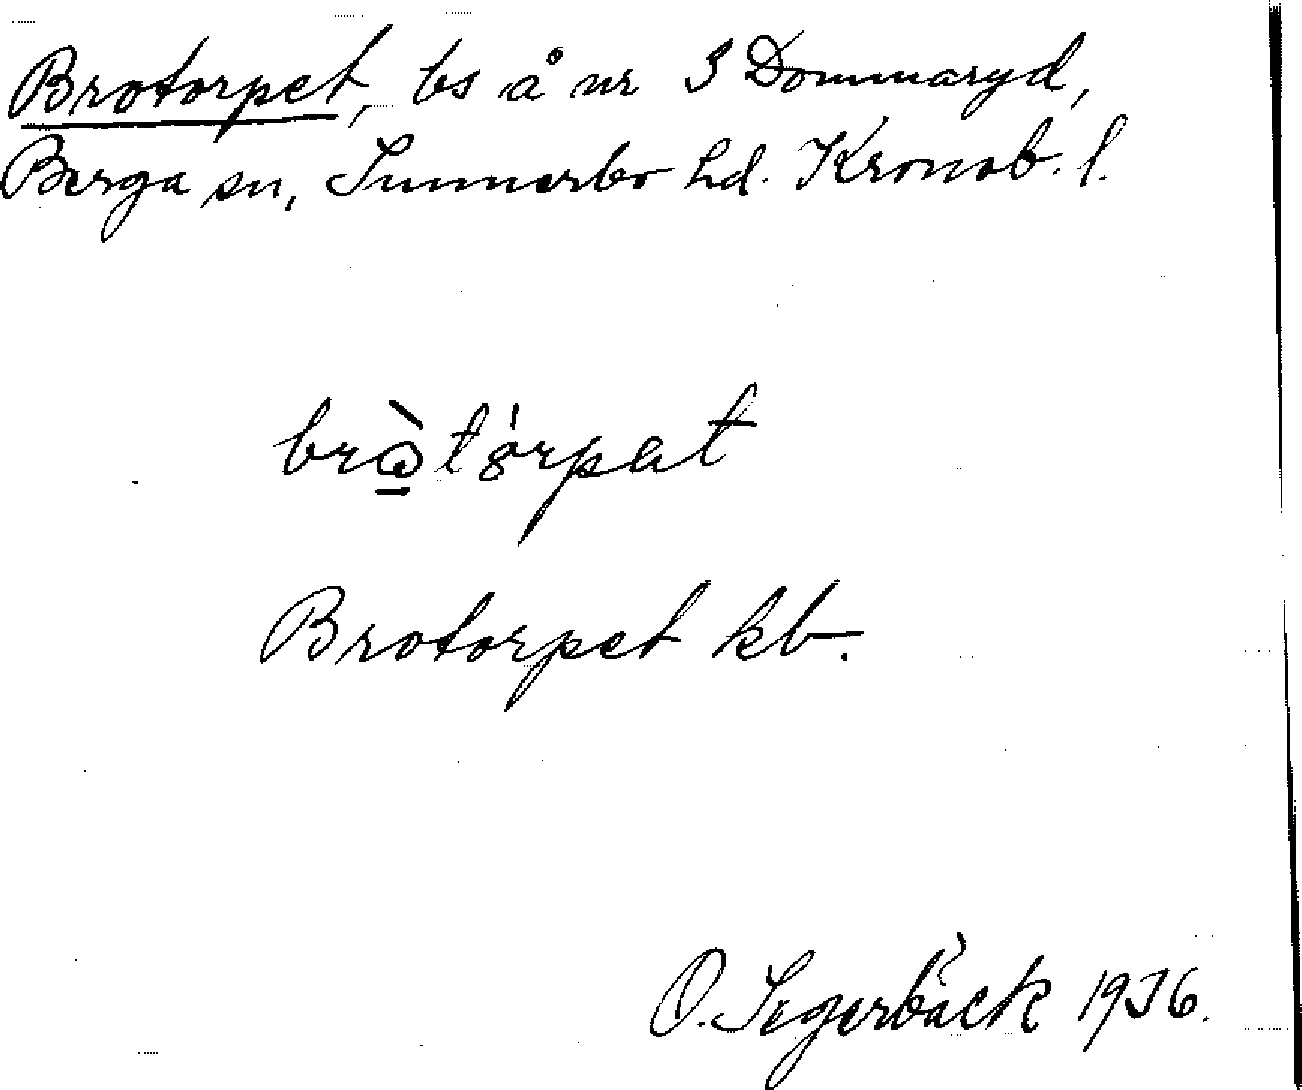 Brotorpet, bs å nr 3 Dommaryd,
Berga sn, Sunnerbo hd. Kronob. l.
brὼ̱tórpat
Brotorpet kb.
O. Segerbäck 1936.